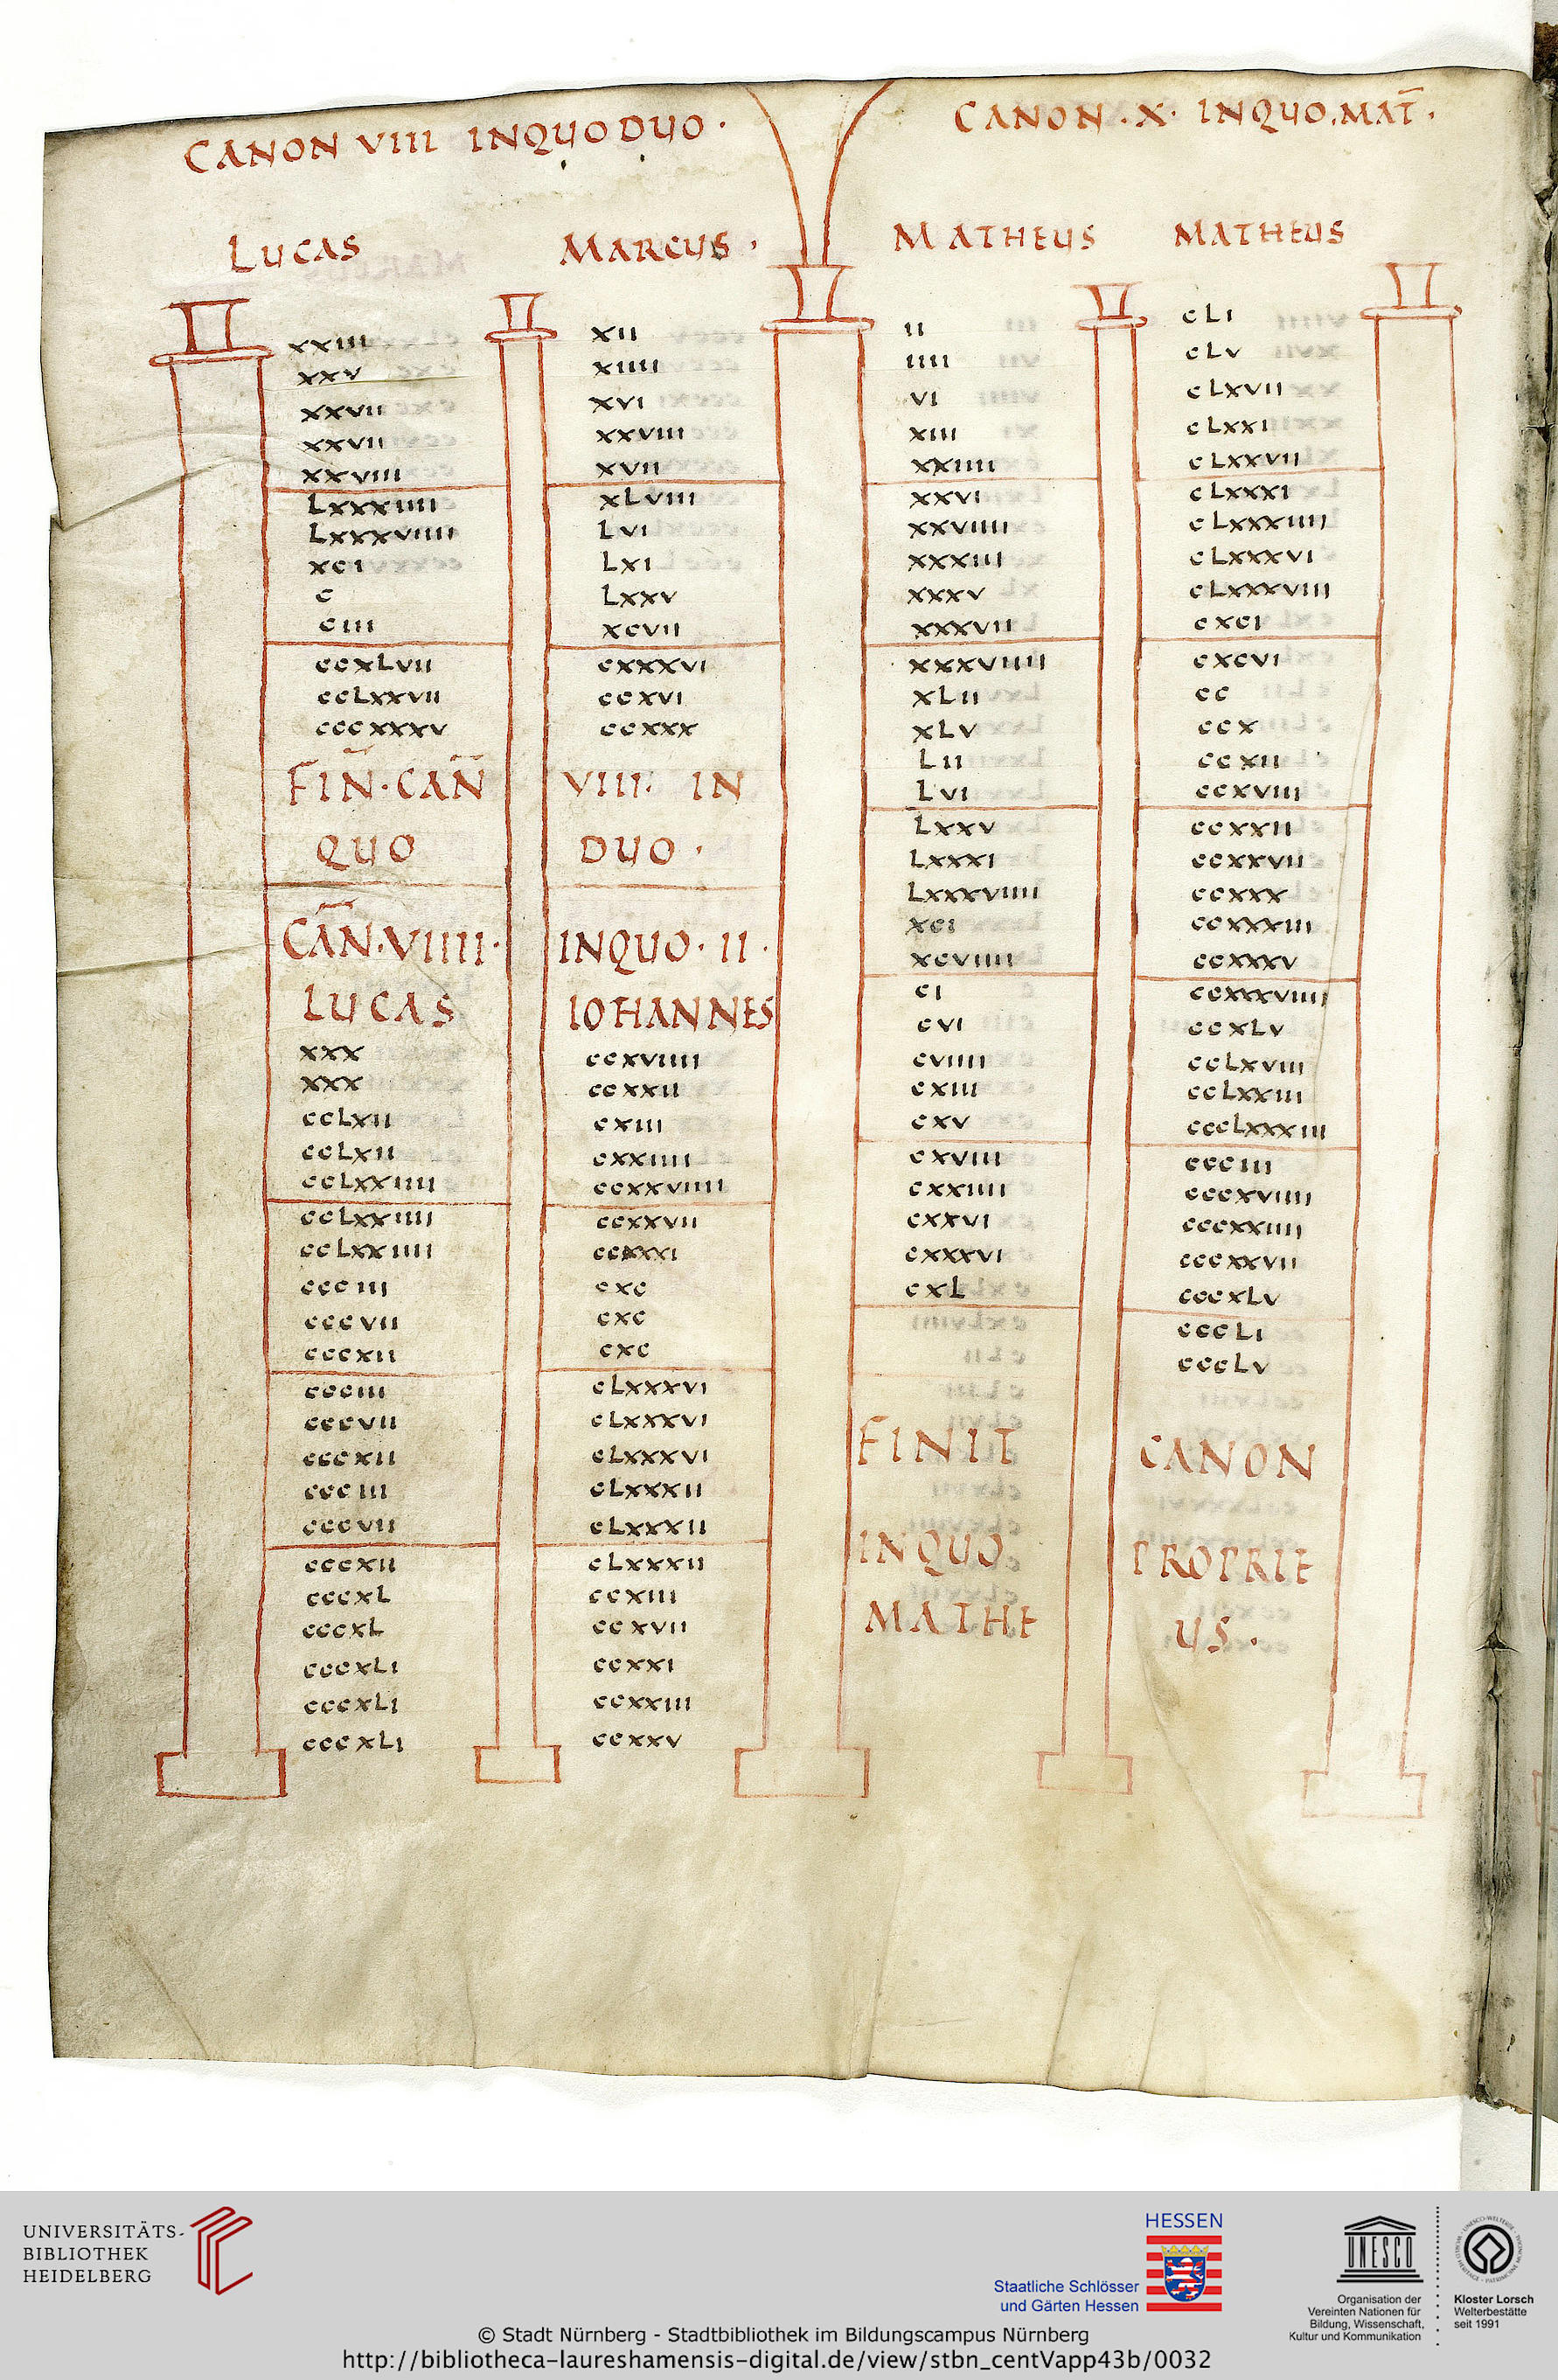 CANON VIII INQUODUO·
LUCAS MARCUS·
XXIII XII
XXV XIIII
XXVII XVI
XXVII XXVIII
XXVIII XVII
LXXXIIII XLVIII
LXXXVIIII LVI
XCI LXI
C LXXV
CIII XCVII
CCXLVII CXXXVI
CCLXXVII CCXVI
CCCXXXV CCXXX
FIN̄·CAN̄ VIII· IN
QUO DUO·
CAN̄·VIIII· INQUO·II·
LUCAS IOHANNES
XXX CCXVIIII
XXX CCXXII
CCLXII CXIII
CCLXII CXXIIII
CCLXXIIII CCXXVIIII
CCLXXIIII CCXXVII
CCLXXIIII CCXXXI
CCCIII CXC
CCCVII CXC
CCCXII CXC
CCCIII CLXXXVI
CCCVII CLXXXVI
CCCXII CLXXXVI
CCCIII CLXXXII
CCCVII CLXXXII
CCCXII CLXXXII
CCCXL CCXIII
CCCXL CCXVII
CCCXLI CCXXI
CCCXLI CCXXIII
CCCXLI CCXXV
CANON·X·INQUO·MAT̄·
MATHEUS MATHEUS
II CLI
IIII CLV
VI CLXVII
XIII CLXXI
XXIIII CLXXVII
XXVI CLXXXI
XXVIIII CLXXXIIII
XXXIII CLXXXVI
XXXV CLXXXVIII
XXXVII CXCI
XXXVIIII CXCVI
XLII CC
XLV CCX
LII CCXII
LVI CCXVIII
LXXV CCXXII
LXXXI CCXXVII
LXXXVIIII CCXXX
XCI CCXXXIII
XCVIIII CCXXXV
CI CCXXXVIIII
CVI CCXLV
CVIIII CCLXVIII
CXIII CCLXXIII
CXV CCCLXXXIII
CXVIII CCCIII
CXXIIII CCCXVIIII
CXXVI CCCXXIIII
CXXXVI CCCXXVII
CXL CCCXLV
CCCLI
CCCLV
FINIT CANON
INQUO PROPRIE
MATHE US·
UNIVERSITÄTS-
BIBLIOTHEK
HEIDELBERG
HESSEN
Staatliche Schlösser
und Gärten Hessen
UNESCO
Organisation der
Vereinten Nationen für
Bildung, Wissenschaft,
Kultur und Kommunikation
Kloster Lorsch
Welterbestätte
seit 1991
© Stadt Nürnberg - Stadtbibliothek im Bildungscampus Nürnberg
http://bibliotheca-laureshamensis-digital.de/view/stbn_centVapp43b/0032